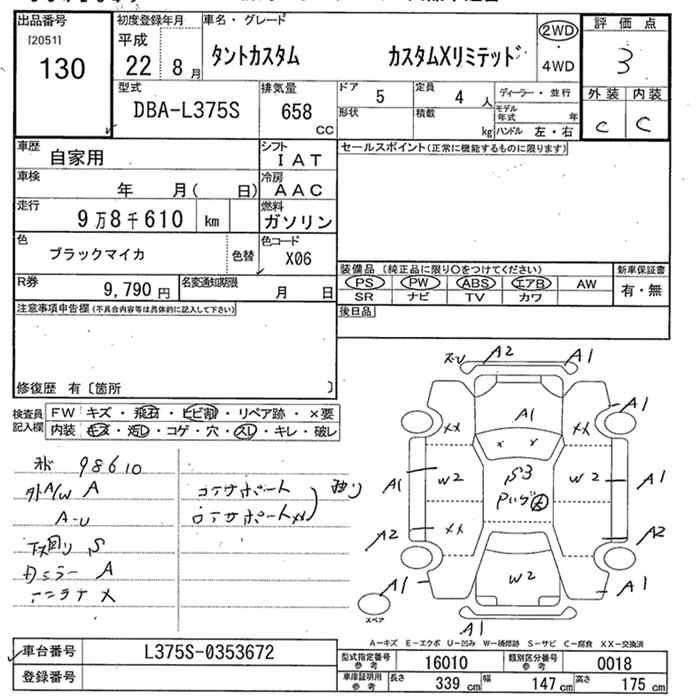 出品番号
[2051]
130
初度登録年月
平成
22 8月
車名・グレード
タントカスタム カスタムXリミテッド
2WD
4WD
評価点
3
外装 内装
C C
型式
DBA-L375S
排気量
658
CC
ドア 5
定員 4 人
形状
積載 kg
ディーラー・並行
モデル年式 年
ハンドル 左・右
車歴
自家用
シフト
IAT
セールスポイント(正常に機能するものに限ります)
車検
年 月( 日)
冷房
AAC
走行
9万8千610 km
燃料
ガソリン
色
ブラックマイカ
色替
色コード
X06
装備品 (純正品に限り〇をつけてください)
PS PW ABS エアB AW
SR ナビ TV カワ
新車保証書
有・無
R券
9,790円
名変通知期限
月 日
後日品
注意事項申告欄(不具合内容等は具体的に記入して下さい)
修復歴 有〔箇所 〕
検査員記入欄
FW キズ・飛石・ヒビ割・リペア跡・×要
内装 キズ・汚レ・コゲ・穴・スレ・キレ・破レ
98610
外A/W A
A-U
下回り S
Dミラー A
アンテナ X
コアサポート
ロアサポートXX
曲り
ズU A2 A1
A1
A1
XX XX
W2 S3 W2
A1 A1
XX
A2 A2
W2
A1 A1
スペア
A1
A-キズ E-エクボ U-凹み W-補修跡 S-サビ C-腐食 XX-交換済
車台番号
L375S-0353672
登録番号
型式指定番号 参考
16010
類別区分番号 参考
0018
車庫証明用 参考
長さ 339 cm 幅 147 cm 高さ 175 cm